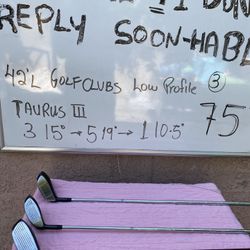 REPLY SOON-HABL
42"L GOLFCLUBS LOW PROFILE ③
TAURUS III 75
3 15° → 5 19° → 1 10.5°